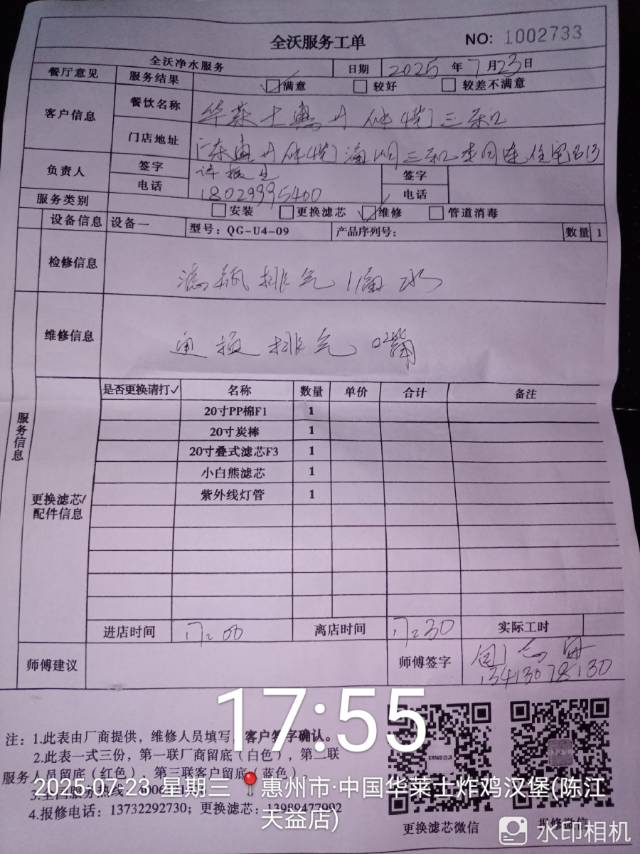 全沃服务工单
NO: 1002733
全沃净水服务 日期 2025 年 7 月 23 日
餐厅意见 服务结果 ☑满意 □较好 □较差不满意
客户信息 餐饮名称 华莱士惠州 三和
门店地址 广东惠州 三和
负责人 签字 签字
电话 18029995400 电话
服务类别 □安装 □更换滤芯 ☑维修 □管道消毒
设备信息 设备一 型号：QG-U4-09 产品序列号： 数量 1
检修信息 滤瓶排气漏水
维修信息 更换排气嘴
服务信息
更换滤芯/配件信息
是否更换请打✓ 名称 数量 单价 合计 备注
20寸PP棉F1 1
20寸炭棒 1
20寸叠式滤芯F3 1
小白熊滤芯 1
紫外线灯管 1
进店时间 17:00 离店时间 17:30 实际工时
师傅建议 师傅签字
13413078130
17:55
注：1.此表由厂商提供，维修人员填写，客户签字确认。
2.此表一式三份，第一联厂商留底（白色），第二联
服务人员留底（红色），第三联客户留底（蓝色）
4.报修电话：13732292730；更换滤芯：13989477992
2025-07-23 星期三 惠州市·中国华莱士炸鸡汉堡(陈江
天益店)
更换滤芯微信 报修微信
水印相机